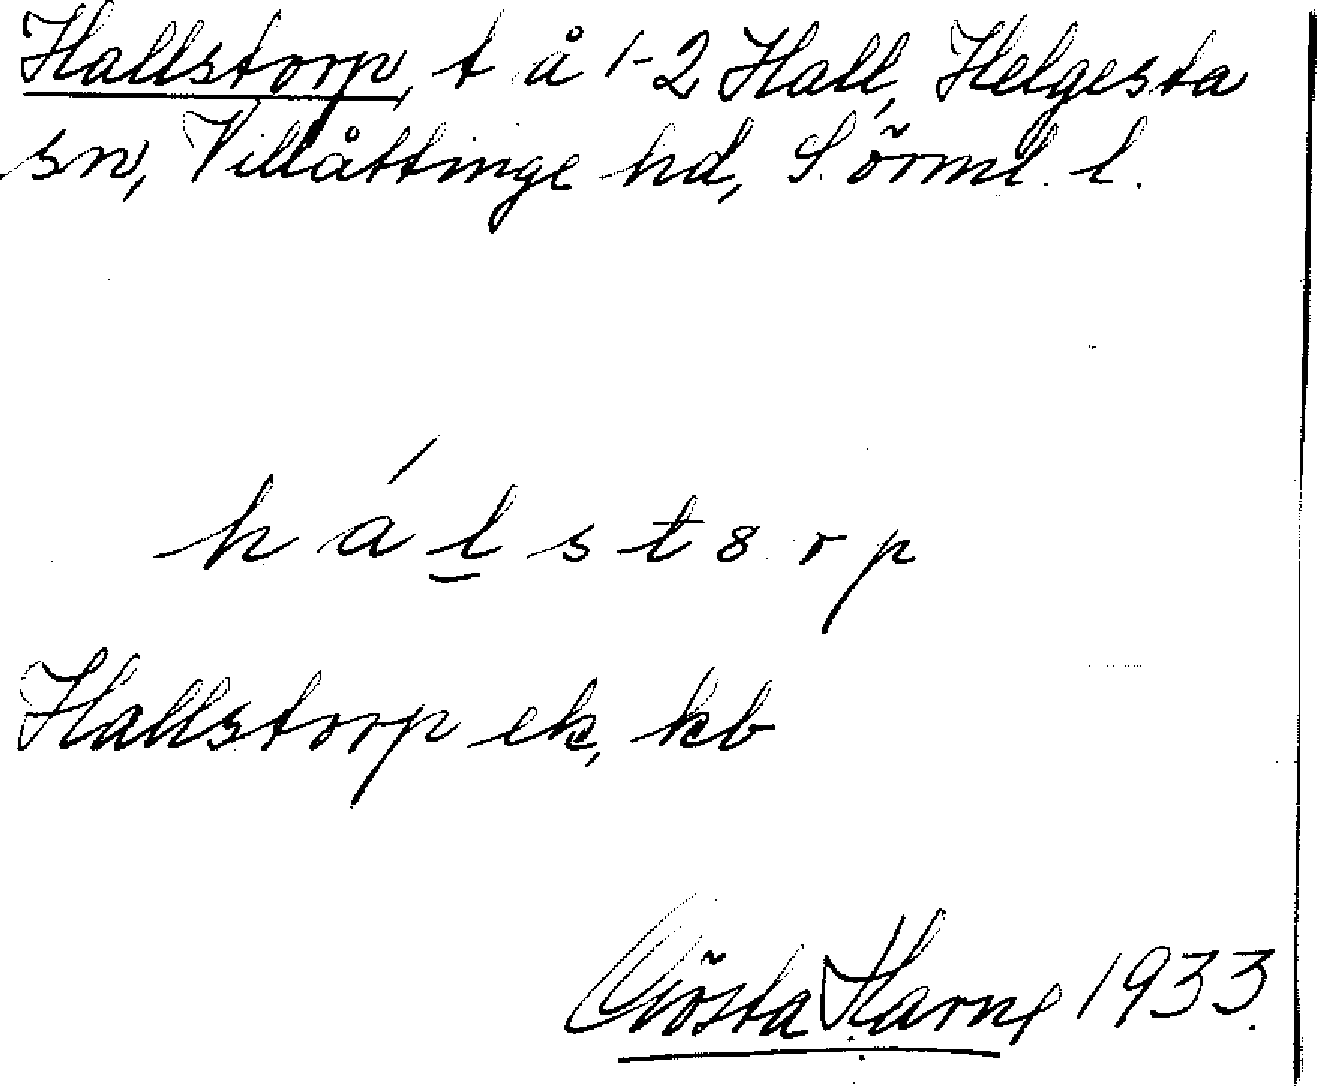 Hallstorp, t å 1-2 Hall, Helgesta
sn, Villåttinge hd, Sörml. l.
hálst8rp
Hallstorp ek, kb
Gösta Harne 1933.